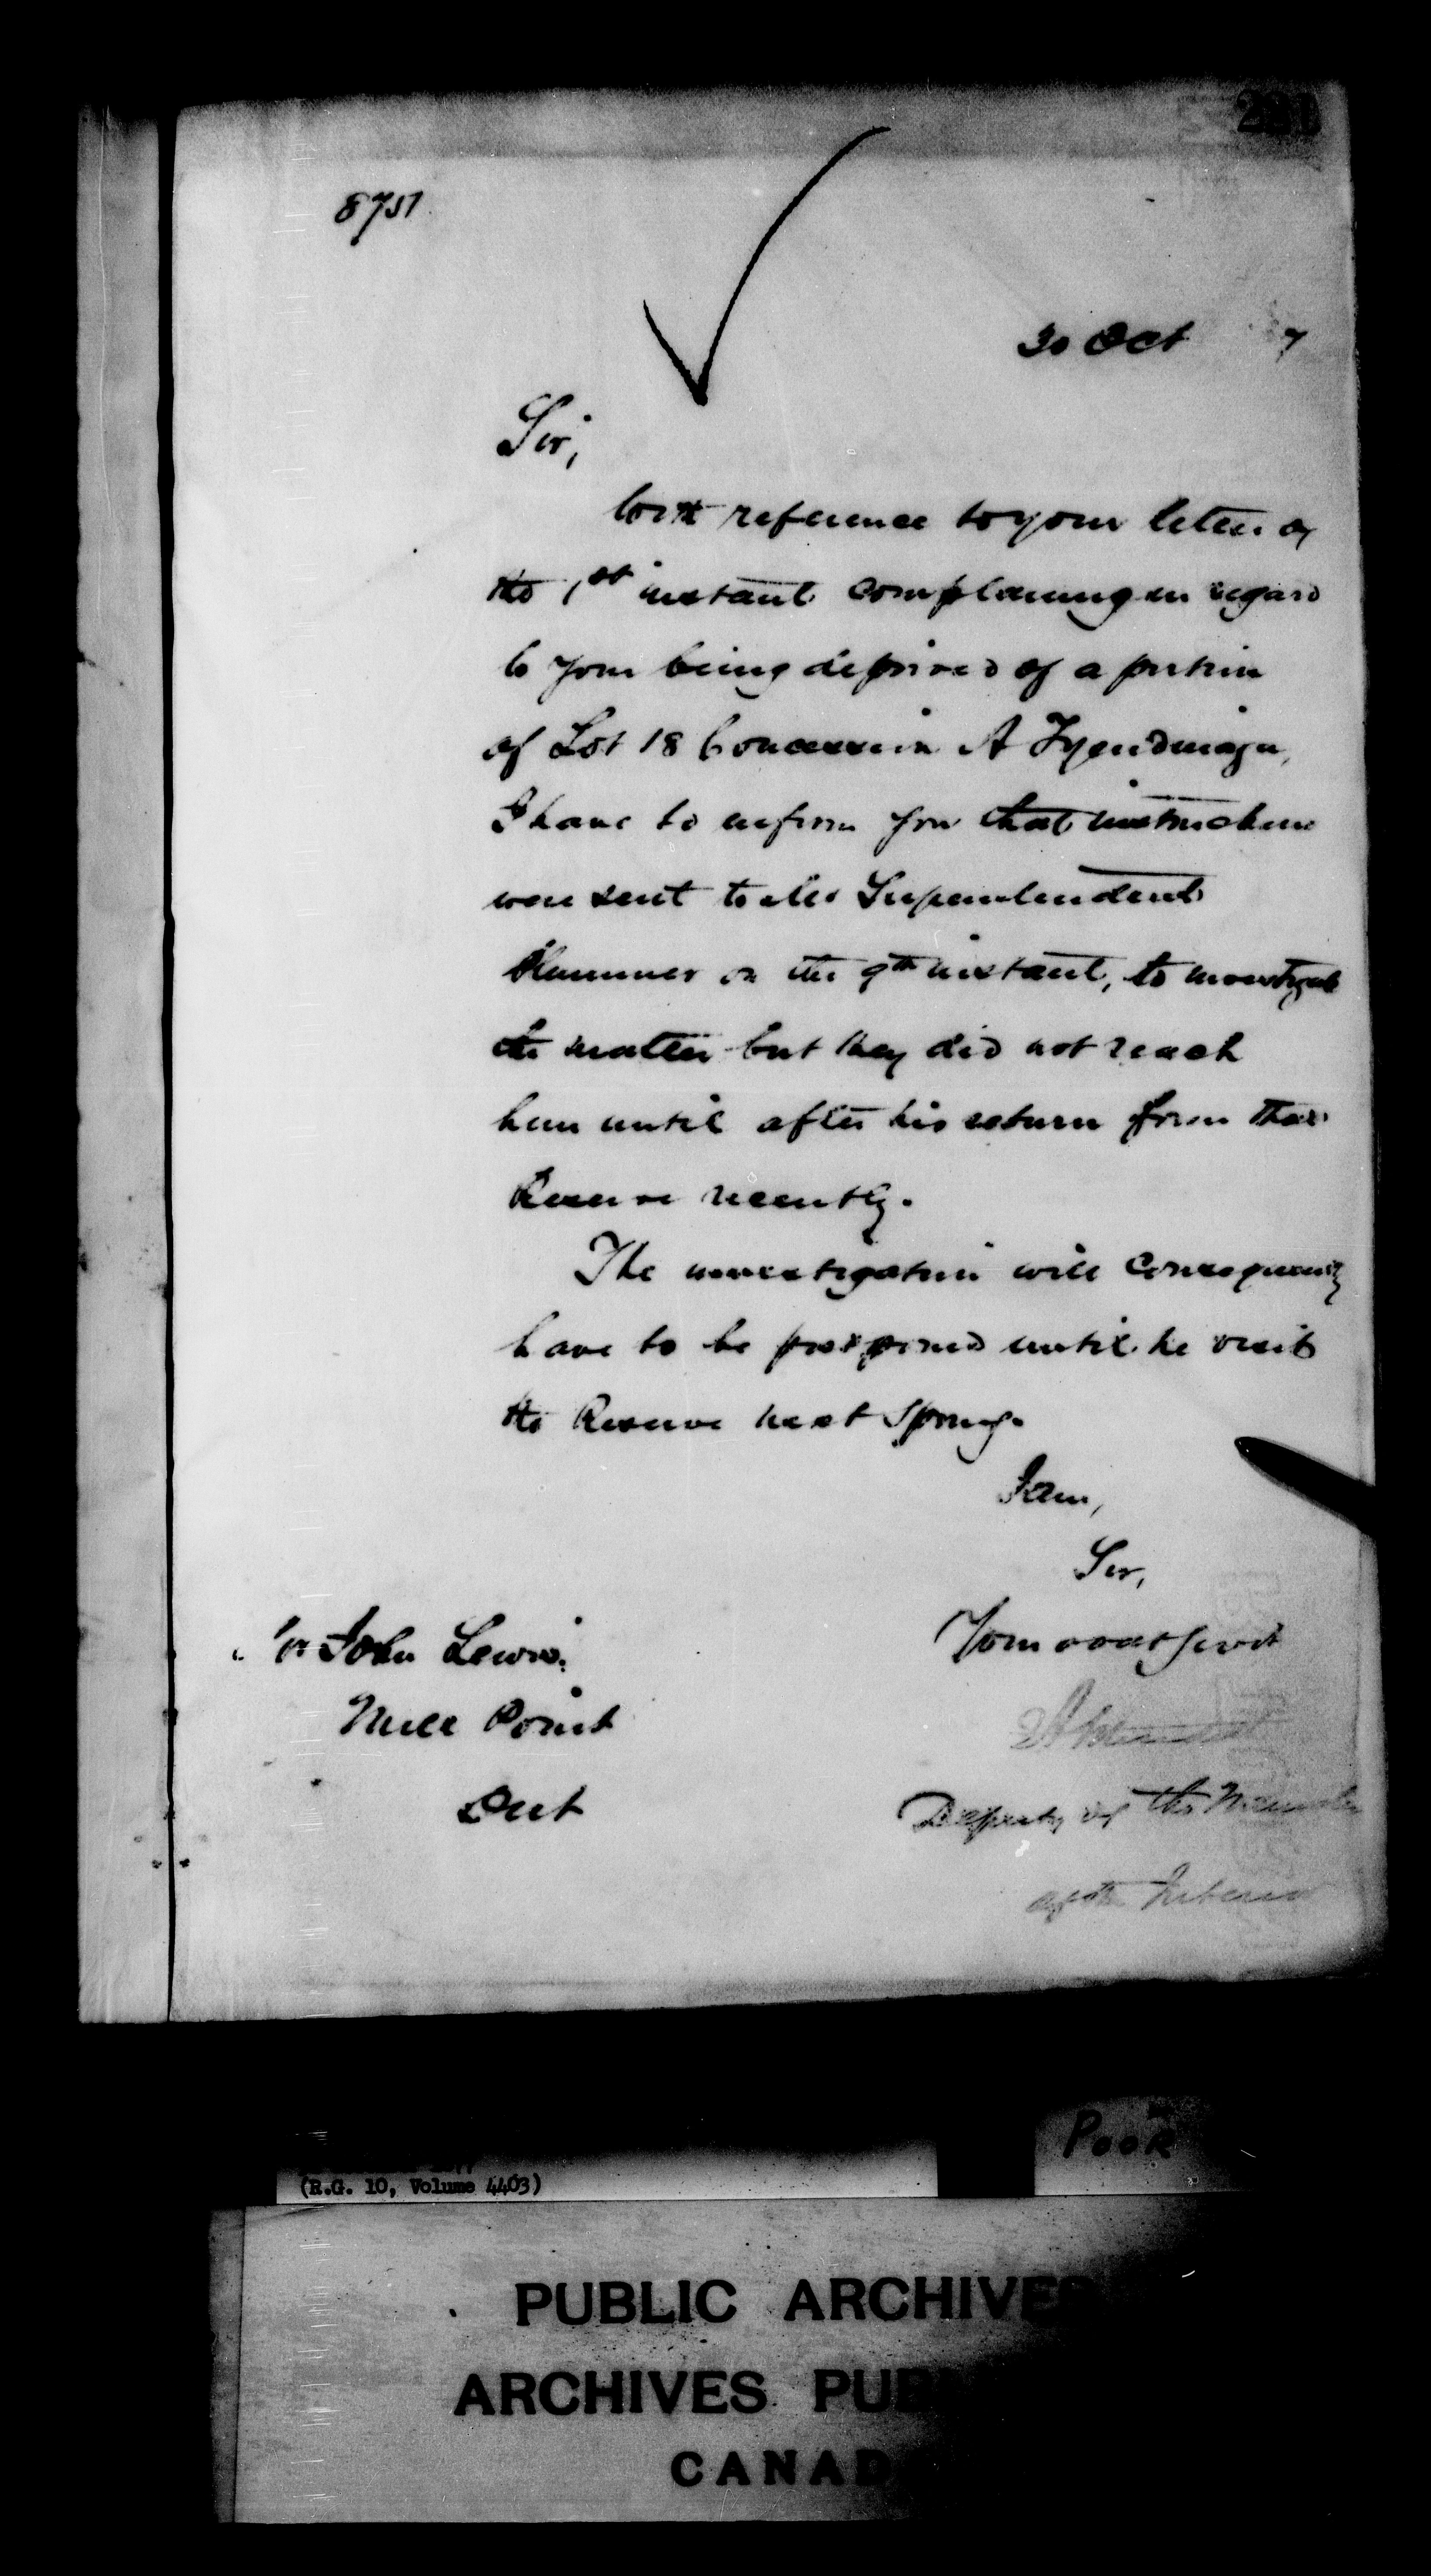 8751
30 Oct 7
Sir,
With reference to your letter of
the 1st instant complaining in regard
to your being deprived of a portion
of Lot 18 Concession A Tyendinaga,
I have to inform you that instructions
were sent to Mr Superintendent
Plummer on the 9th instant, to investigate
the matter but they did not reach
him until after his return from the
Reserve recently.
The investigation will consequently
have to be postponed until he visits
the Reserve next Spring.
I am,
Sir,
Your obedt servt
Mr John Lewis.
Mill Point
Ont
Deputy of the Minister
of the Interior
Poor
(R.G. 10, Volume 4403)
PUBLIC ARCHIVES
ARCHIVES PUB
CANAD